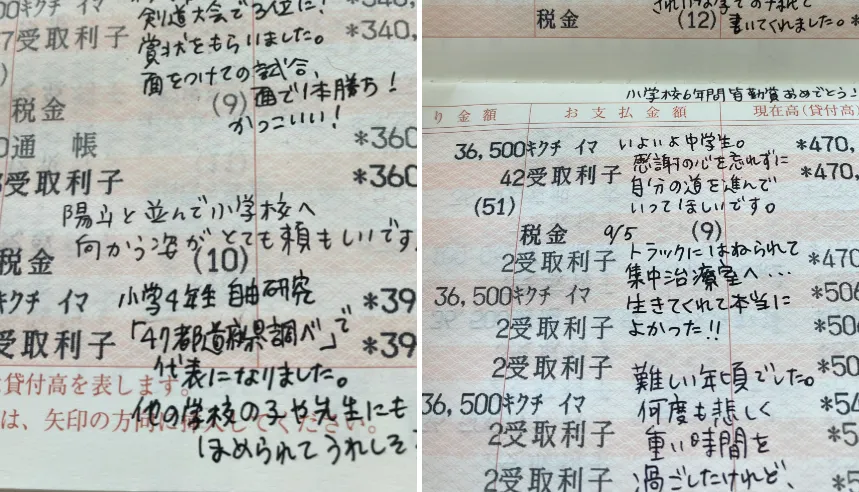 剣道大会で3位に!
受取利子
賞状をもらいました。
*340,
面をつけての試合、
面で1本勝ち!
税金
(9)
かっこいい!
通 帳
*360
受取利子
*360
陽斗と並んで小学校へ
向かう姿がとても頼もしいです
税金
(10)
キクチ イマ
小学4年生 自由研究
*39
受取利子
「47都道府県調べ」で
*39
代表になりました。
貸付高を表します。
は、矢印の方向に
してください。
他の学校の子や先生にも
ほめられてうれしそ
税金
(12)
書いてくれました。
小学校6年間皆勤賞おめでとう
り金額
お支払金額
現在高(貸付高)
36,500キクチ イマ
いよいよ中学生。
*470,
42受取利子
感謝の心を忘れずに
*470,
(51)
自分の道を進んで
いってほしいです。
税金
9/5
(9)
2受取利子
トラックにはねられて
*470
集中治療室へ・・・
36,500キクチ イマ
生きてくれて本当に
*506
2受取利子
よかった!!
*50
2受取利子
難しい年頃でした。
*50
36,500キクチ イマ
何度も悲しく
*54
2受取利子
重い時間を
*5
2受取利子
過ごしたけれど、
*5